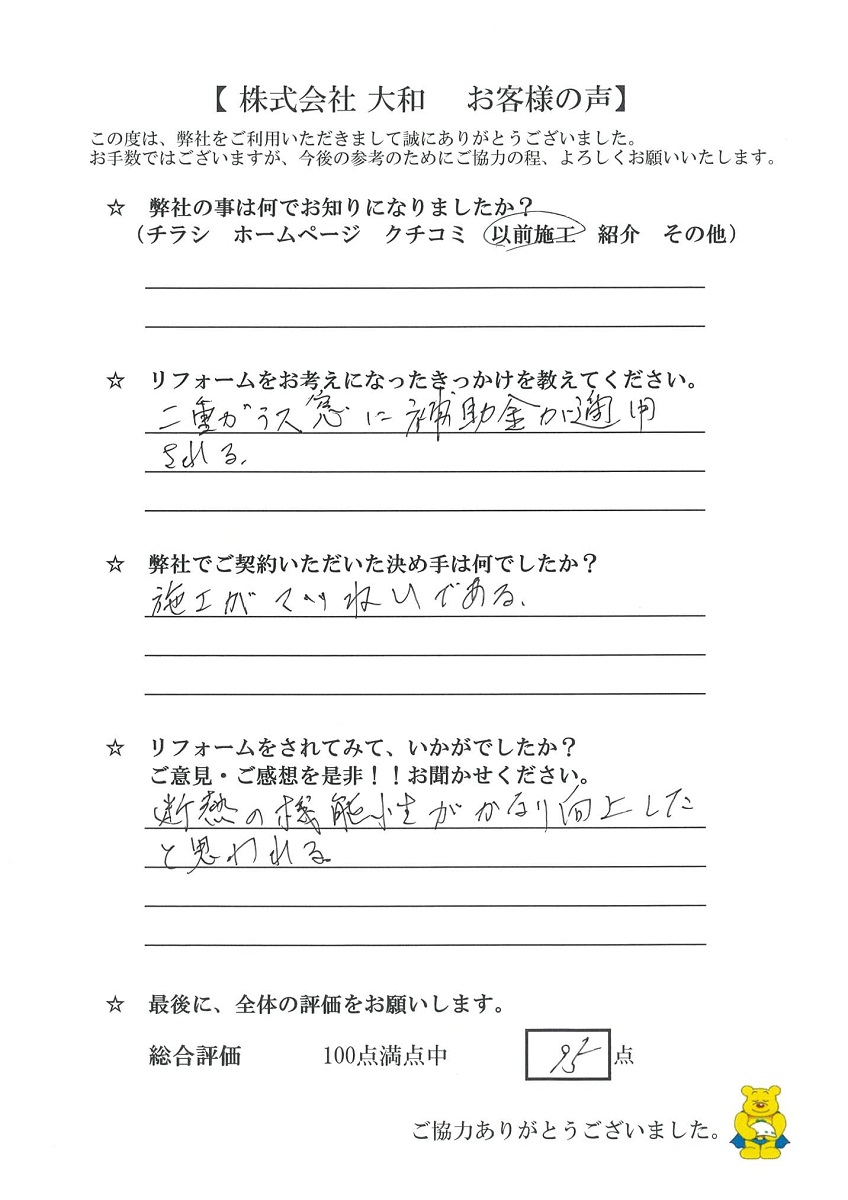 【 株式会社 大和　お客様の声】
この度は、弊社をご利用いただきまして誠にありがとうございました。
お手数ではございますが、今後の参考のためにご協力の程、よろしくお願いいたします。
☆　弊社の事は何でお知りになりましたか？
（チラシ　ホームページ　クチコミ　以前施工　紹介　その他）
☆　リフォームをお考えになったきっかけを教えてください。
二重ガラス窓に補助金が適用
される。
☆　弊社でご契約いただいた決め手は何でしたか？
施工がていねいである。
☆　リフォームをされてみて、いかがでしたか？
ご意見・ご感想を是非！！お聞かせください。
断熱の機能性がかなり向上した
と思われる。
☆　最後に、全体の評価をお願いします。
総合評価　100点満点中　95点
ご協力ありがとうございました。